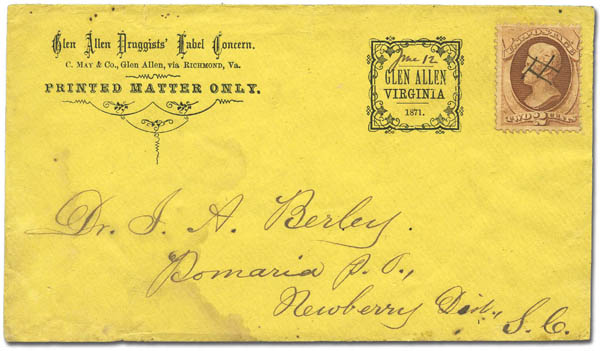 Glen Allen Druggists' Label Concern.
C. MAY & Co., Glen Allen, via RICHMOND, Va.
PRINTED MATTER ONLY.
June 12
GLEN ALLEN
VIRGINIA
1871.
TWO 2 CENTS
Dr. J. A. Berley.
Pomaria P. O.,
Newberry Dist.,
S. C.